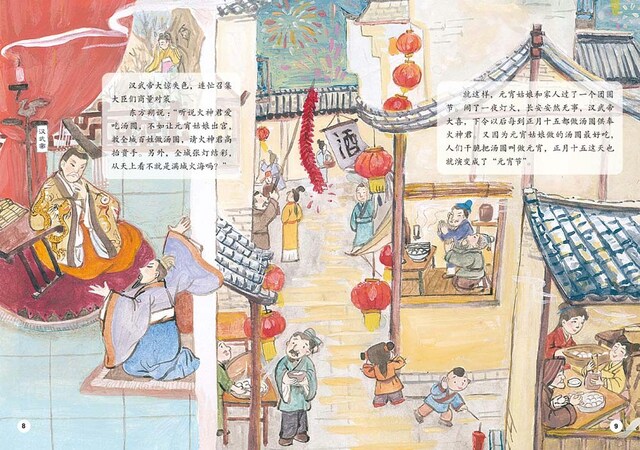 汉武帝大惊失色，连忙召集
大臣们商量对策。
东方朔说：“听说火神君爱
吃汤圆，不如让元宵姑娘出宫，
教全城百姓做汤圆，请火神君高
抬贵手。另外，全城张灯结彩，
从天上看不就是满城火海吗？”
汉武帝
酒
就这样，元宵姑娘和家人过了一个团圆
节，闹了一夜灯火，长安安然无事，汉武帝
大喜，下令以后每到正月十五都做汤圆供奉
火神君。又因为元宵姑娘做的汤圆最好吃，
人们干脆把汤圆叫做元宵，正月十五这天也
就演变成了“元宵节”。
8
9